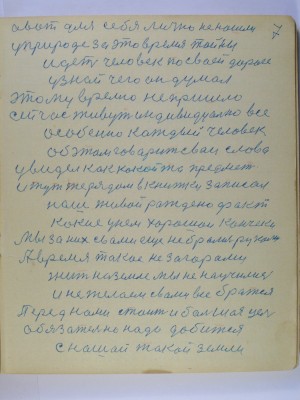 а вот для себя лично не нашли
у природе за это время тайны
идет человек по своей дороге
узнал чего он думал
этому время не пришло
сейчас живут индивидуално все
особенно каждый человек
об этом говорит свои слова
увидел как какой то предмет
и тут же рядом в книжку записал
наш живой раждено факот
какие у нем хорошои кончики
Мы за них свами еще не брались рукои
А время такое не загорами
жит на земле мы не научились
и не желаем свами все братся
Перед нами стоит и большая цел
обязателно надо добится
с нашой такой земли